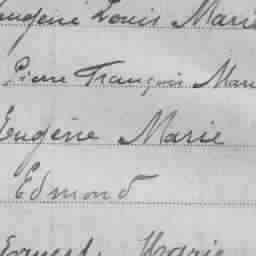 Eugène Louis Marie
Pierre François Mari
Eugène Marie
Edmond
Ernest Marie